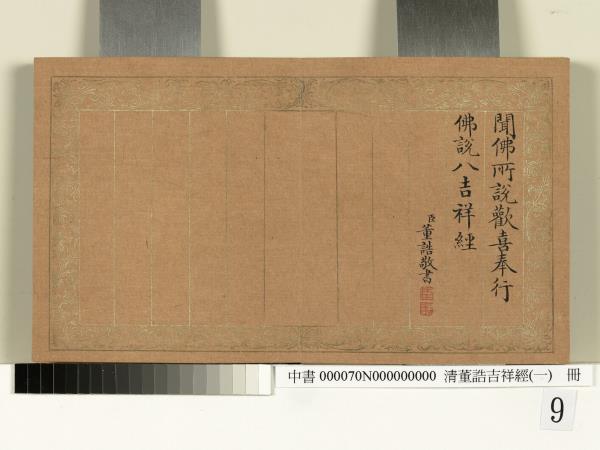 聞佛所說歡喜奉行
佛說八吉祥經
臣董誥敬書
中書 000070N000000000 清董誥吉祥經(一) 冊
9